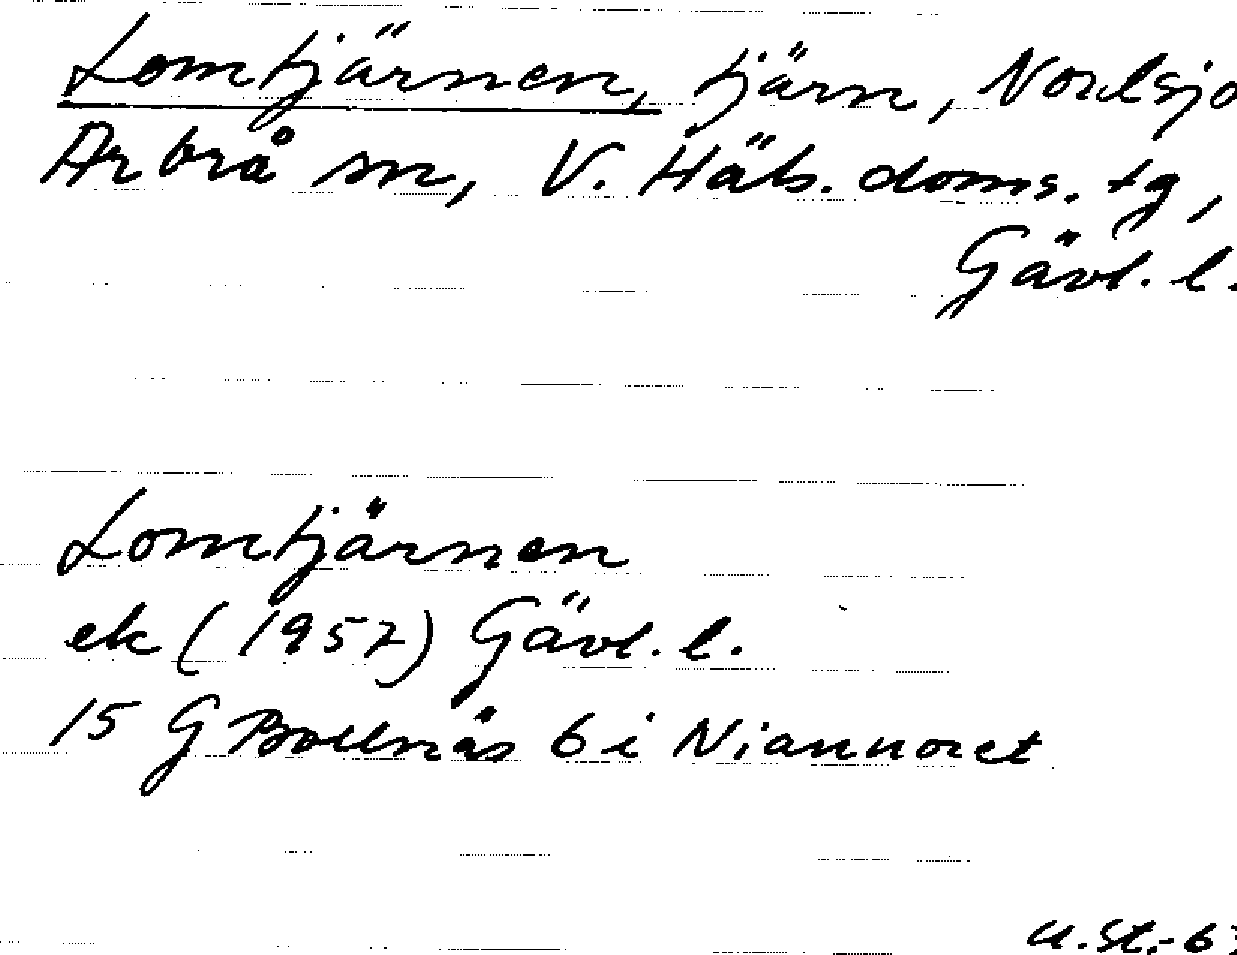 Lomtjärnen, tjärn, Nordsjö
Arbrå sn, V. Häls. doms. tg,
Gävl. l.
Lomtjärnen
ek (1957) Gävl. l.
15 G Bollnäs 6 i Niannoret